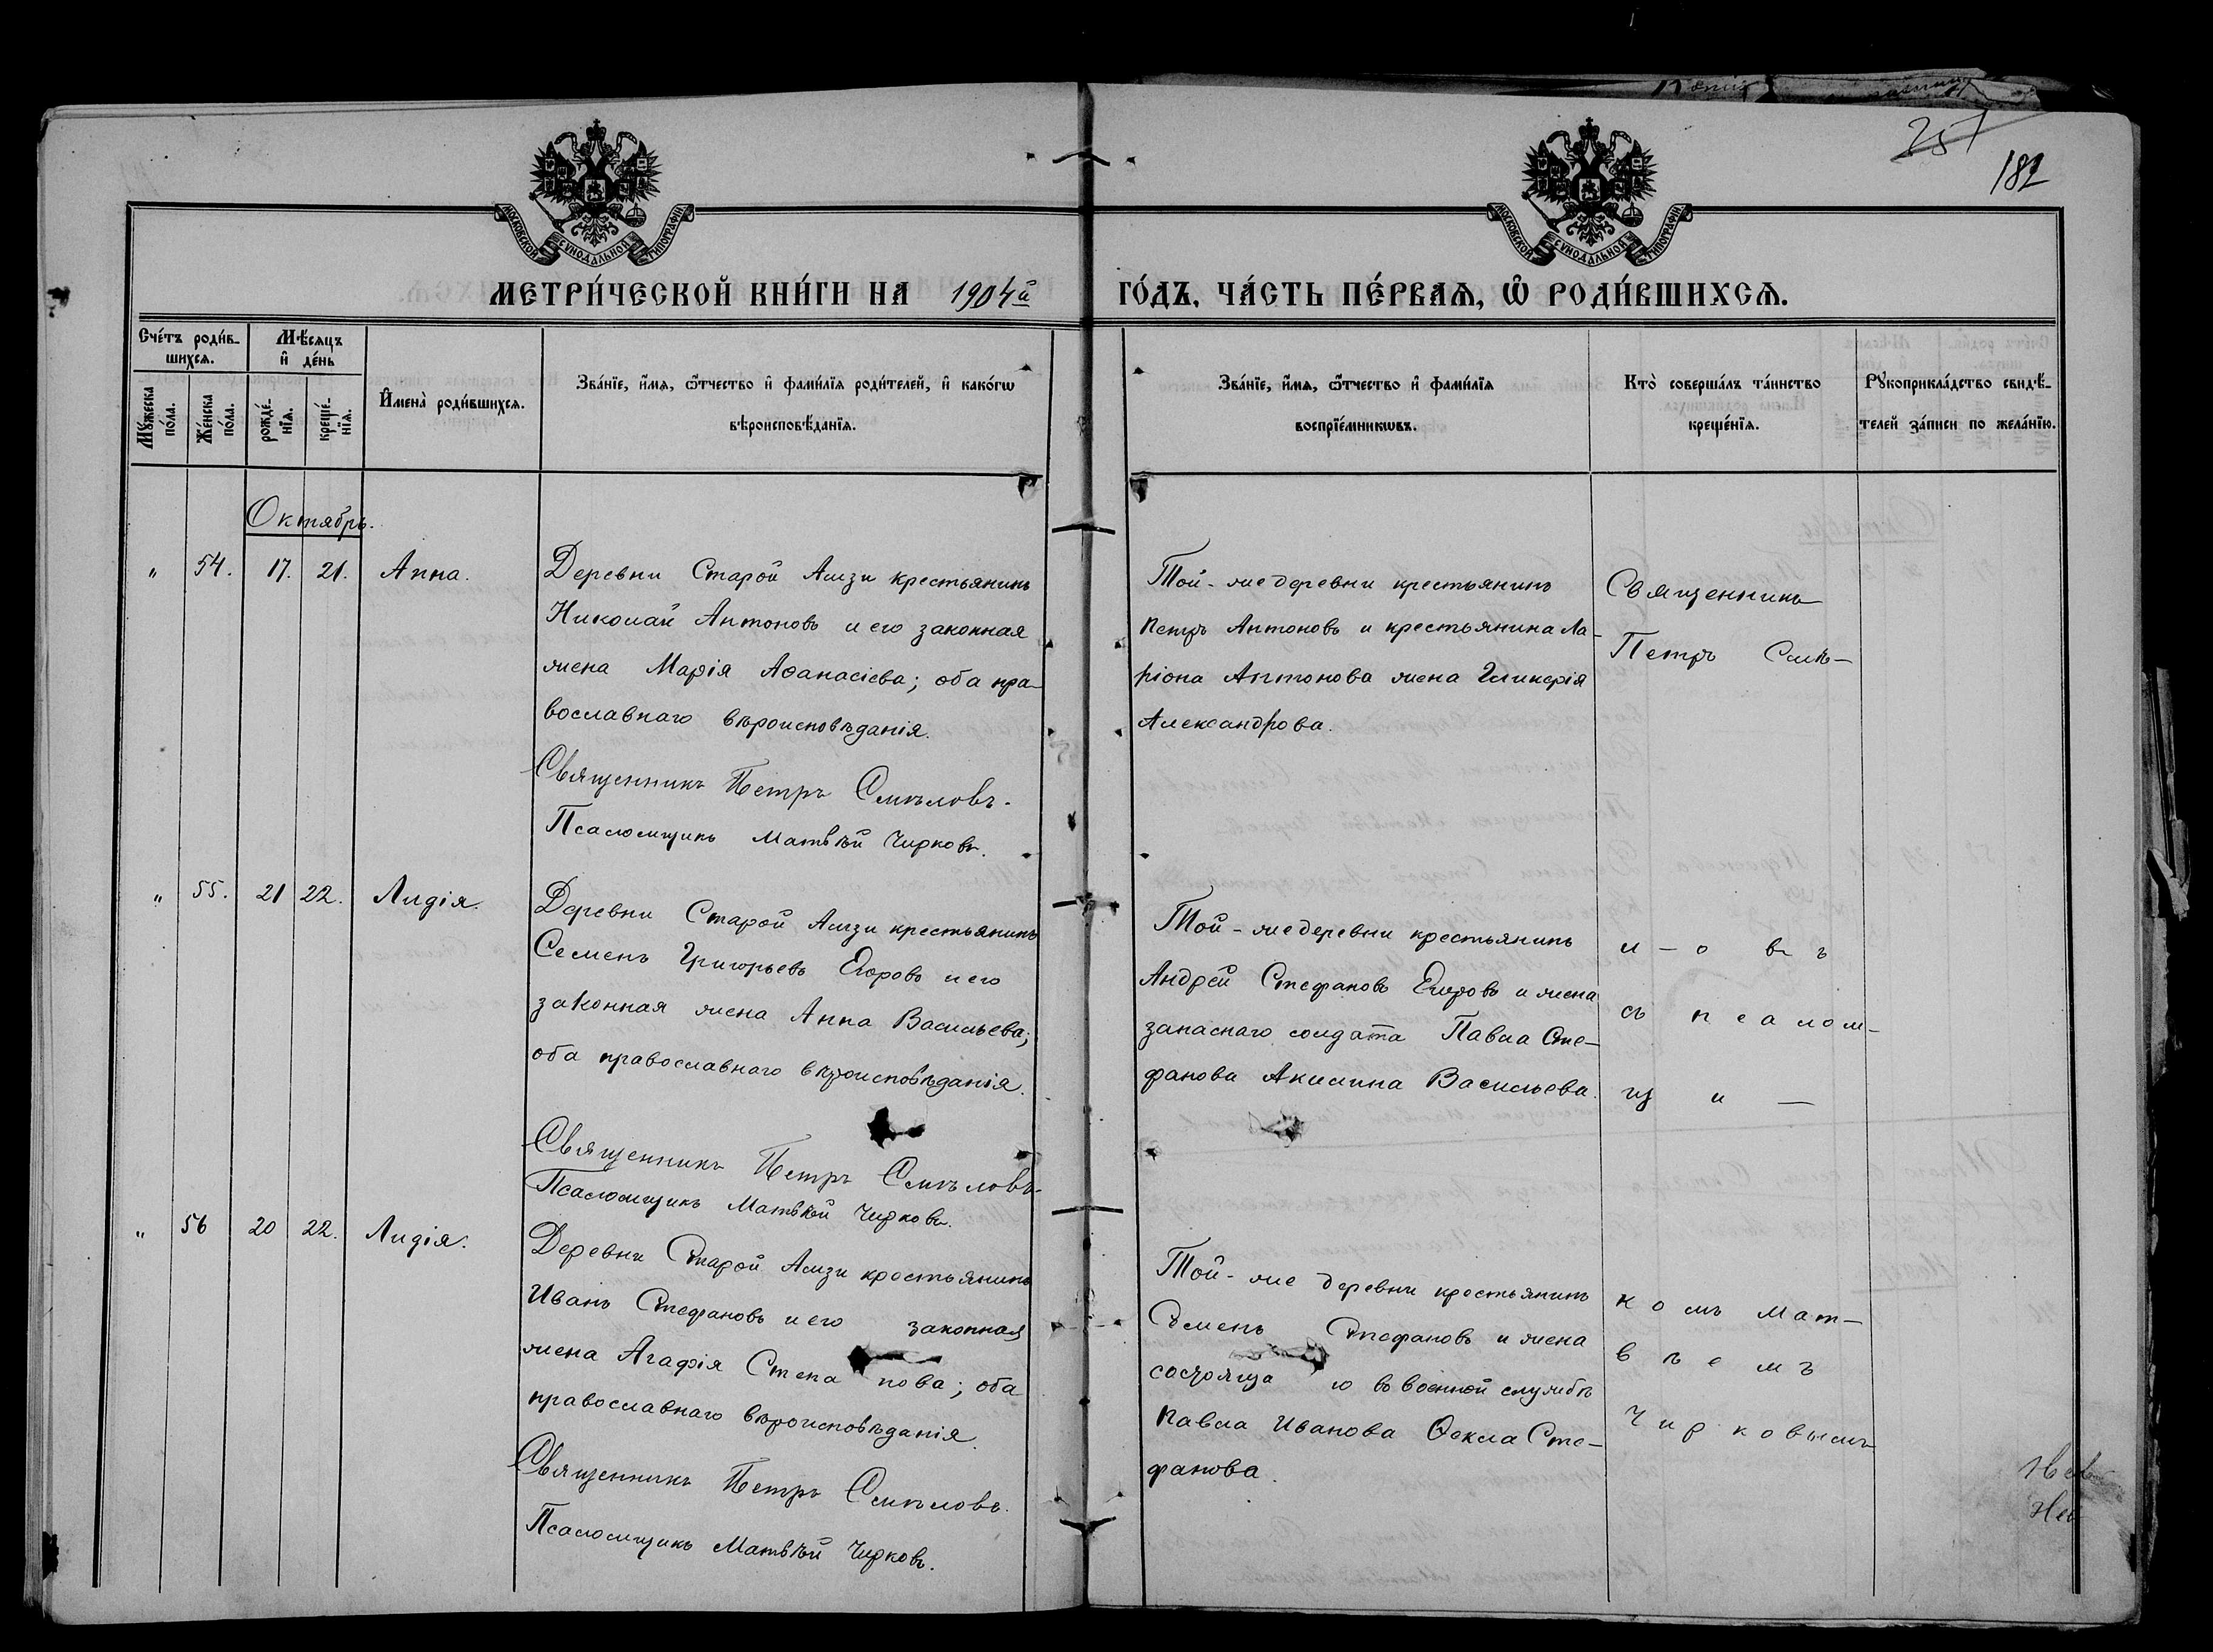 257
182
МОСКОВСКОЙ СѴНОДАЛЬНОЙ ТИПОГРАФІИ
МОСКОВСКОЙ СѴНОДАЛЬНОЙ ТИПОГРАФІИ
МЕТРИ́ЧЕСКОЙ КНИ́ГИ НА 1904й ГО́ДЪ, ЧА́СТЬ ПЕ́РВАЯ, Ѽ РОДИ́ВШИХСЯ.
Сче́тъ роди́в-
шихся.
Мѣ́сяцъ
и҆ де́нь
Мꙋ́жеска
по́ла.
Же́нска
по́ла.
рожде́-
нїя.
креще́-
нїя.
И҆мена̀ роди́вшихся.
Зва́нїе, и҆́мя, ѻ҆́тчество и҆ фами́лїя роди́телей, и҆ како́гѡ
вѣроисповѣ́данїя.
Зва́нїе, и҆́мя, ѻ҆́тчество и҆ фами́лїя
воспрїе́мникѡвъ.
Кто̀ соверша́лъ та́инство
креще́нїя.
Рꙋкоприкла́дство свидѣ́-
телей за́писи по жела́нїю.
Октябрь.
" 54. 17. 21. Анна.
Деревни Старой Амзи крестьянинъ
Николай Антоновъ и его законная
жена Марія Аѳанасіева; оба пра-
вославнаго вѣроисповѣданія.
Священникъ Петръ Смѣловъ.
Псаломщикъ Матвѣй Чирковъ.
Той-же деревни крестьянинъ
Петръ Антоновъ и крестьянина Ла-
ріона Антонова жена Гликерія
Александрова.
Священникъ
Петръ Смѣ-
" 55. 21 22. Лидія.
Деревни Старой Амзи крестьянинъ
Семенъ Григорьевъ Егоровъ и его
законная жена Анна Васильева;
оба православнаго вѣроисповѣданія.
Священникъ Петръ Смѣловъ.
Псаломщикъ Матвѣй Чирковъ.
Той-же деревни крестьянинъ
Андрей Стефановъ Егоровъ и жена
запаснаго солдата Павла Сте-
фанова Акилина Васильева.
л-о въ
съ псалом-
щи-
" 56 20 22. Лидія.
Деревни Старой Амзи крестьянинъ
Иванъ Стефановъ и его законная
жена Агафія Степанова; оба
православнаго вѣроисповѣданія.
Священникъ Петръ Смѣловъ.
Псаломщикъ Матвѣй Чирковъ.
Той-же деревни крестьянинъ
Семенъ Стефановъ и жена
состояща ю въ военной службѣ
Павла Иванова Ѳекла Сте-
фанова.
комъ Мат-
вѣемъ
Чирковымъ